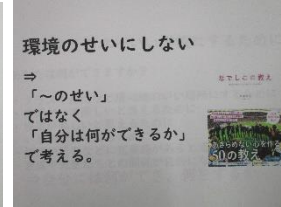 環境のせいにしない
⇒
「～のせい」
ではなく
「自分は何ができるか」
で考える。
なでしこの教え
あきらめない心を作る
50の教え